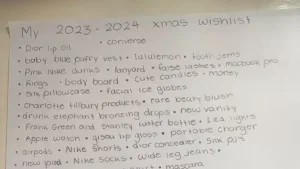 My 2023-2024 xmas wishlist
• Dior lip oil • converse
• baby blue puffy vest • lululemon • tooth gems
• Pink Nike dunks • lanyard • false lashes • macbook pro
• Rings • body board • Cute candles • money
• Silk pillowcase • facial ice globes
• Charlotte tilbury products • rare beaty blush
• drunk elephant bronzing drops • new vanity
• Frank Green and Stanley water bottle • Led lights
• Apple watch • gisou lip gloss • portable charger
• airpods • Nike Shorts • dior concealer • Silk pjs
• new ipad • Nike socks • wide leg jeans •
• mascara